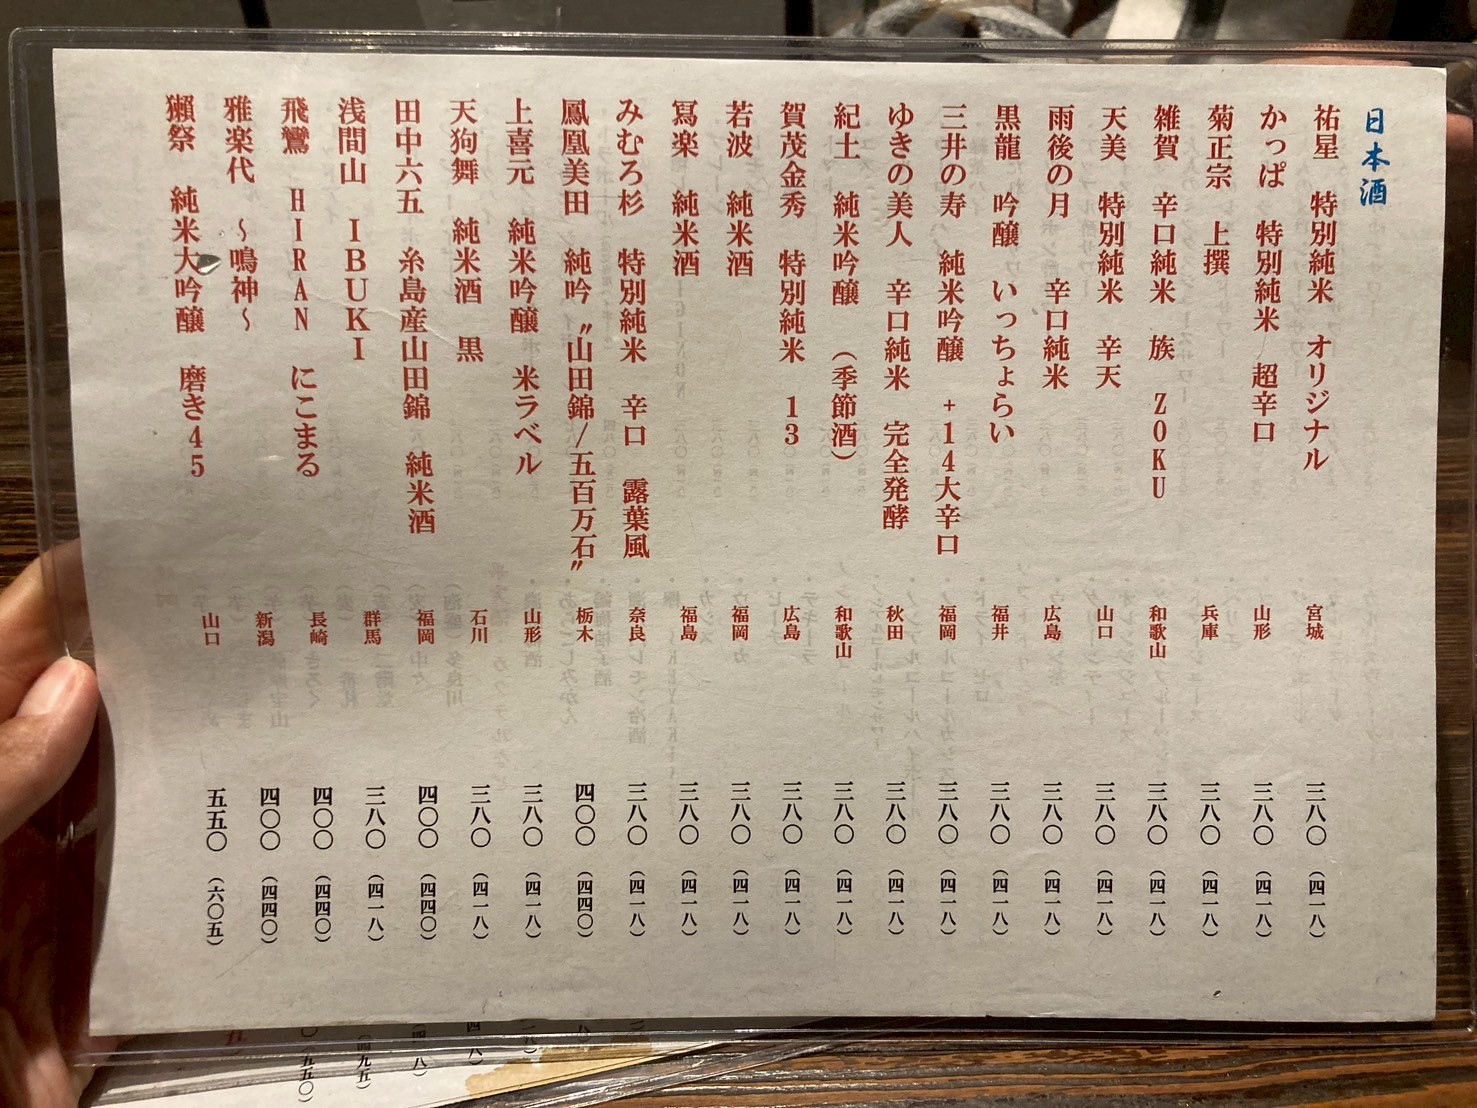 日本酒
祐星 特別純米 オリジナル 宮城 三八〇 (四一八)
かっぱ 特別純米/超辛口 山形 三八〇 (四一八)
菊正宗 上撰 兵庫 三八〇 (四一八)
雑賀 辛口純米 族 ZOKU 和歌山 三八〇 (四一八)
天美 特別純米 辛天 山口 三八〇 (四一八)
雨後の月 辛口純米 広島 三八〇 (四一八)
黒龍 吟醸 いっちょらい 福井 三八〇 (四一八)
三井の寿 純米吟醸 +14大辛口 福岡 三八〇 (四一八)
ゆきの美人 辛口純米 完全発酵 秋田 三八〇 (四一八)
紀土 純米吟醸 (季節酒) 和歌山 三八〇 (四一八)
賀茂金秀 特別純米 13 広島 三八〇 (四一八)
若波 純米酒 福岡 三八〇 (四一八)
冩楽 純米酒 福島 三八〇 (四一八)
みむろ杉 特別純米 辛口 露葉風 奈良 三八〇 (四一八)
鳳凰美田 純吟 〝山田錦/五百万石〟 栃木 四〇〇 (四四〇)
上喜元 純米吟醸 米ラベル 山形 三八〇 (四一八)
天狗舞 純米酒 黒 石川 三八〇 (四一八)
田中六五 糸島産山田錦 純米酒 福岡 四〇〇 (四四〇)
浅間山 IBUKI 群馬 三八〇 (四一八)
飛鸞 HIRAN にこまる 長崎 四〇〇 (四四〇)
雅楽代 〜鳴神〜 新潟 四〇〇 (四四〇)
獺祭 純米大吟醸 磨き45 山口 五五〇 (六〇五)